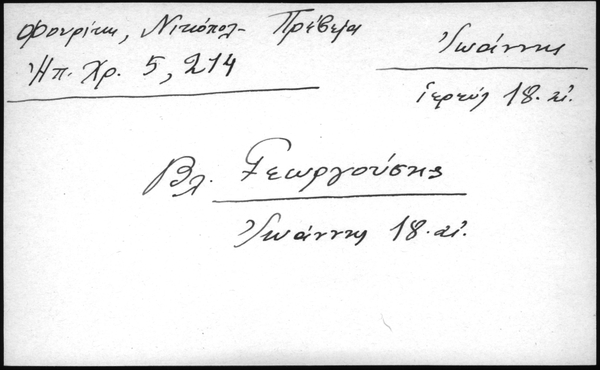 Φουρίκη, Νικόπολ- Πρέβεζα
Ἠπ. Χρ. 5, 214
Ἰωάννης
ἱερεύς 18. αἰ.
Βλ. Γεωργούσης
Ἰωάννης 18. αἰ.